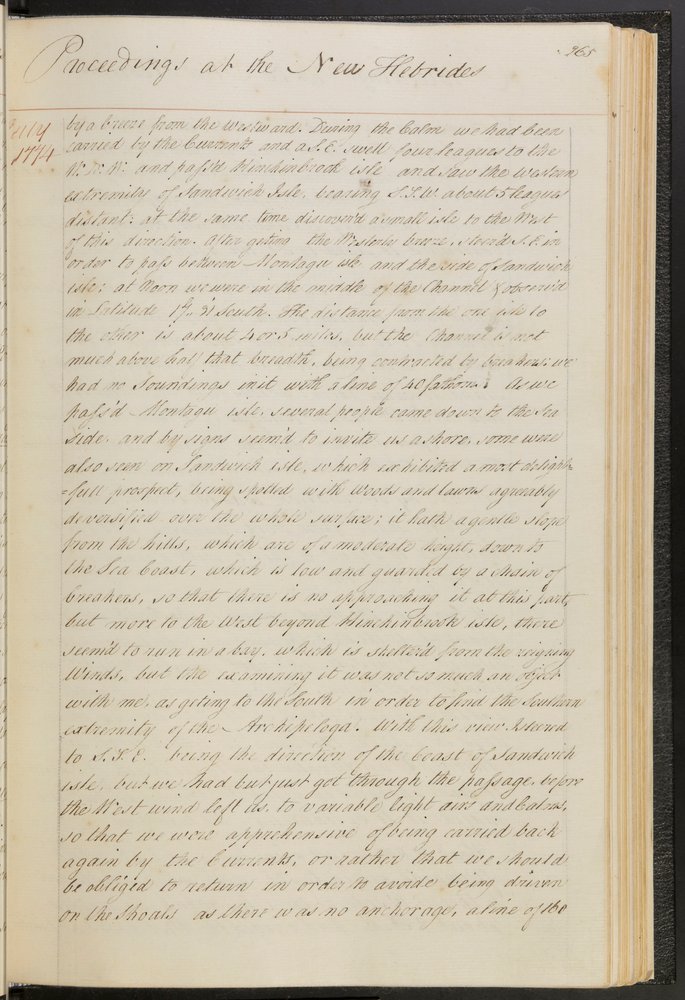 265
Proceedings at the New Hebrides
July
1774
by a breeze from the westward. During the Calm we had been
carried by the Currents and a S.E. swell four leagues to the
W. N. W. and pass'd Hinchinbrook isle and saw the western
extremity of Sandwich Isle, bearing S.S.W. about 5 leagues
distant: at the same time discover'd a small isle to the West
of this direction. After geting the Westerly breeze, steer'd S.E. in
order to pass between Montagu isle and the side of Sandwich
isle: at Noon we were in the middle of the Channel & observ'd
in Latitude 17°.. 31' South. The distance from the one isle to
the other is about 4 or 5 miles, but the Channel is not
much above half that breadth, being contracted by breakers: we
had no Soundings in it with a line of 40 fathoms. As we
pass'd Montagu isle, several people came down to the Sea
side, and by signs seem'd to invite us ashore, some were
also seen on Sandwich isle, which exhibited a most delight-
=full prospect, being spotted with woods and lawns agreeably
deversified over the whole surface; it hath a gentle slope
from the hills, which are of a moderate height, down to
the Sea Coast, which is low and guarded by a chain of
breakers, so that there is no approaching it at this part,
but more to the West beyond Hinchinbrook isle, there
seem'd to run in a bay, which is shelter'd from the reigning
Winds, but the examining it was not so much an object
with me, as geting to the South in order to find the Southern
extremity of the Archipeloga. With this view I steered
to S.S.E. being the direction of the Coast of Sandwich
isle, but we had but just got through the passage, before
the West wind left us, to variable light airs and Calms,
so that we were apprehensive of being carried back
again by the Currents, or rather that we should
be obliged to return in order to avoide being driven
on the Shoals as there was no anchorage, a line of 160